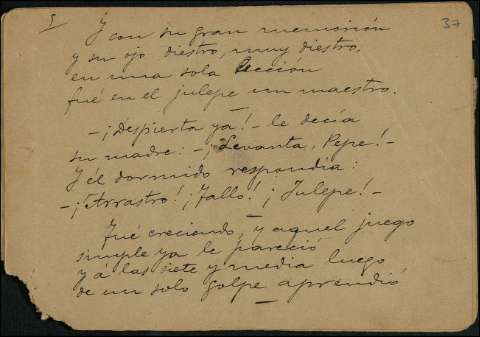 5 Y con su gran memorión
37
y su ojo diestro, muy diestro,
en una sola lección
fué en el julepe un maestro.
—
—¡Despierta ya!— le decía
su madre: —¡Levanta, Pepe!—
Y él dormido respondia:
—¡Arrastro! ¡Fallo! ¡Julepe!—
—
Fué creciendo, y aquel juego
simple ya le pareció
y á las siete y media luego
de un solo golpe aprendió
—